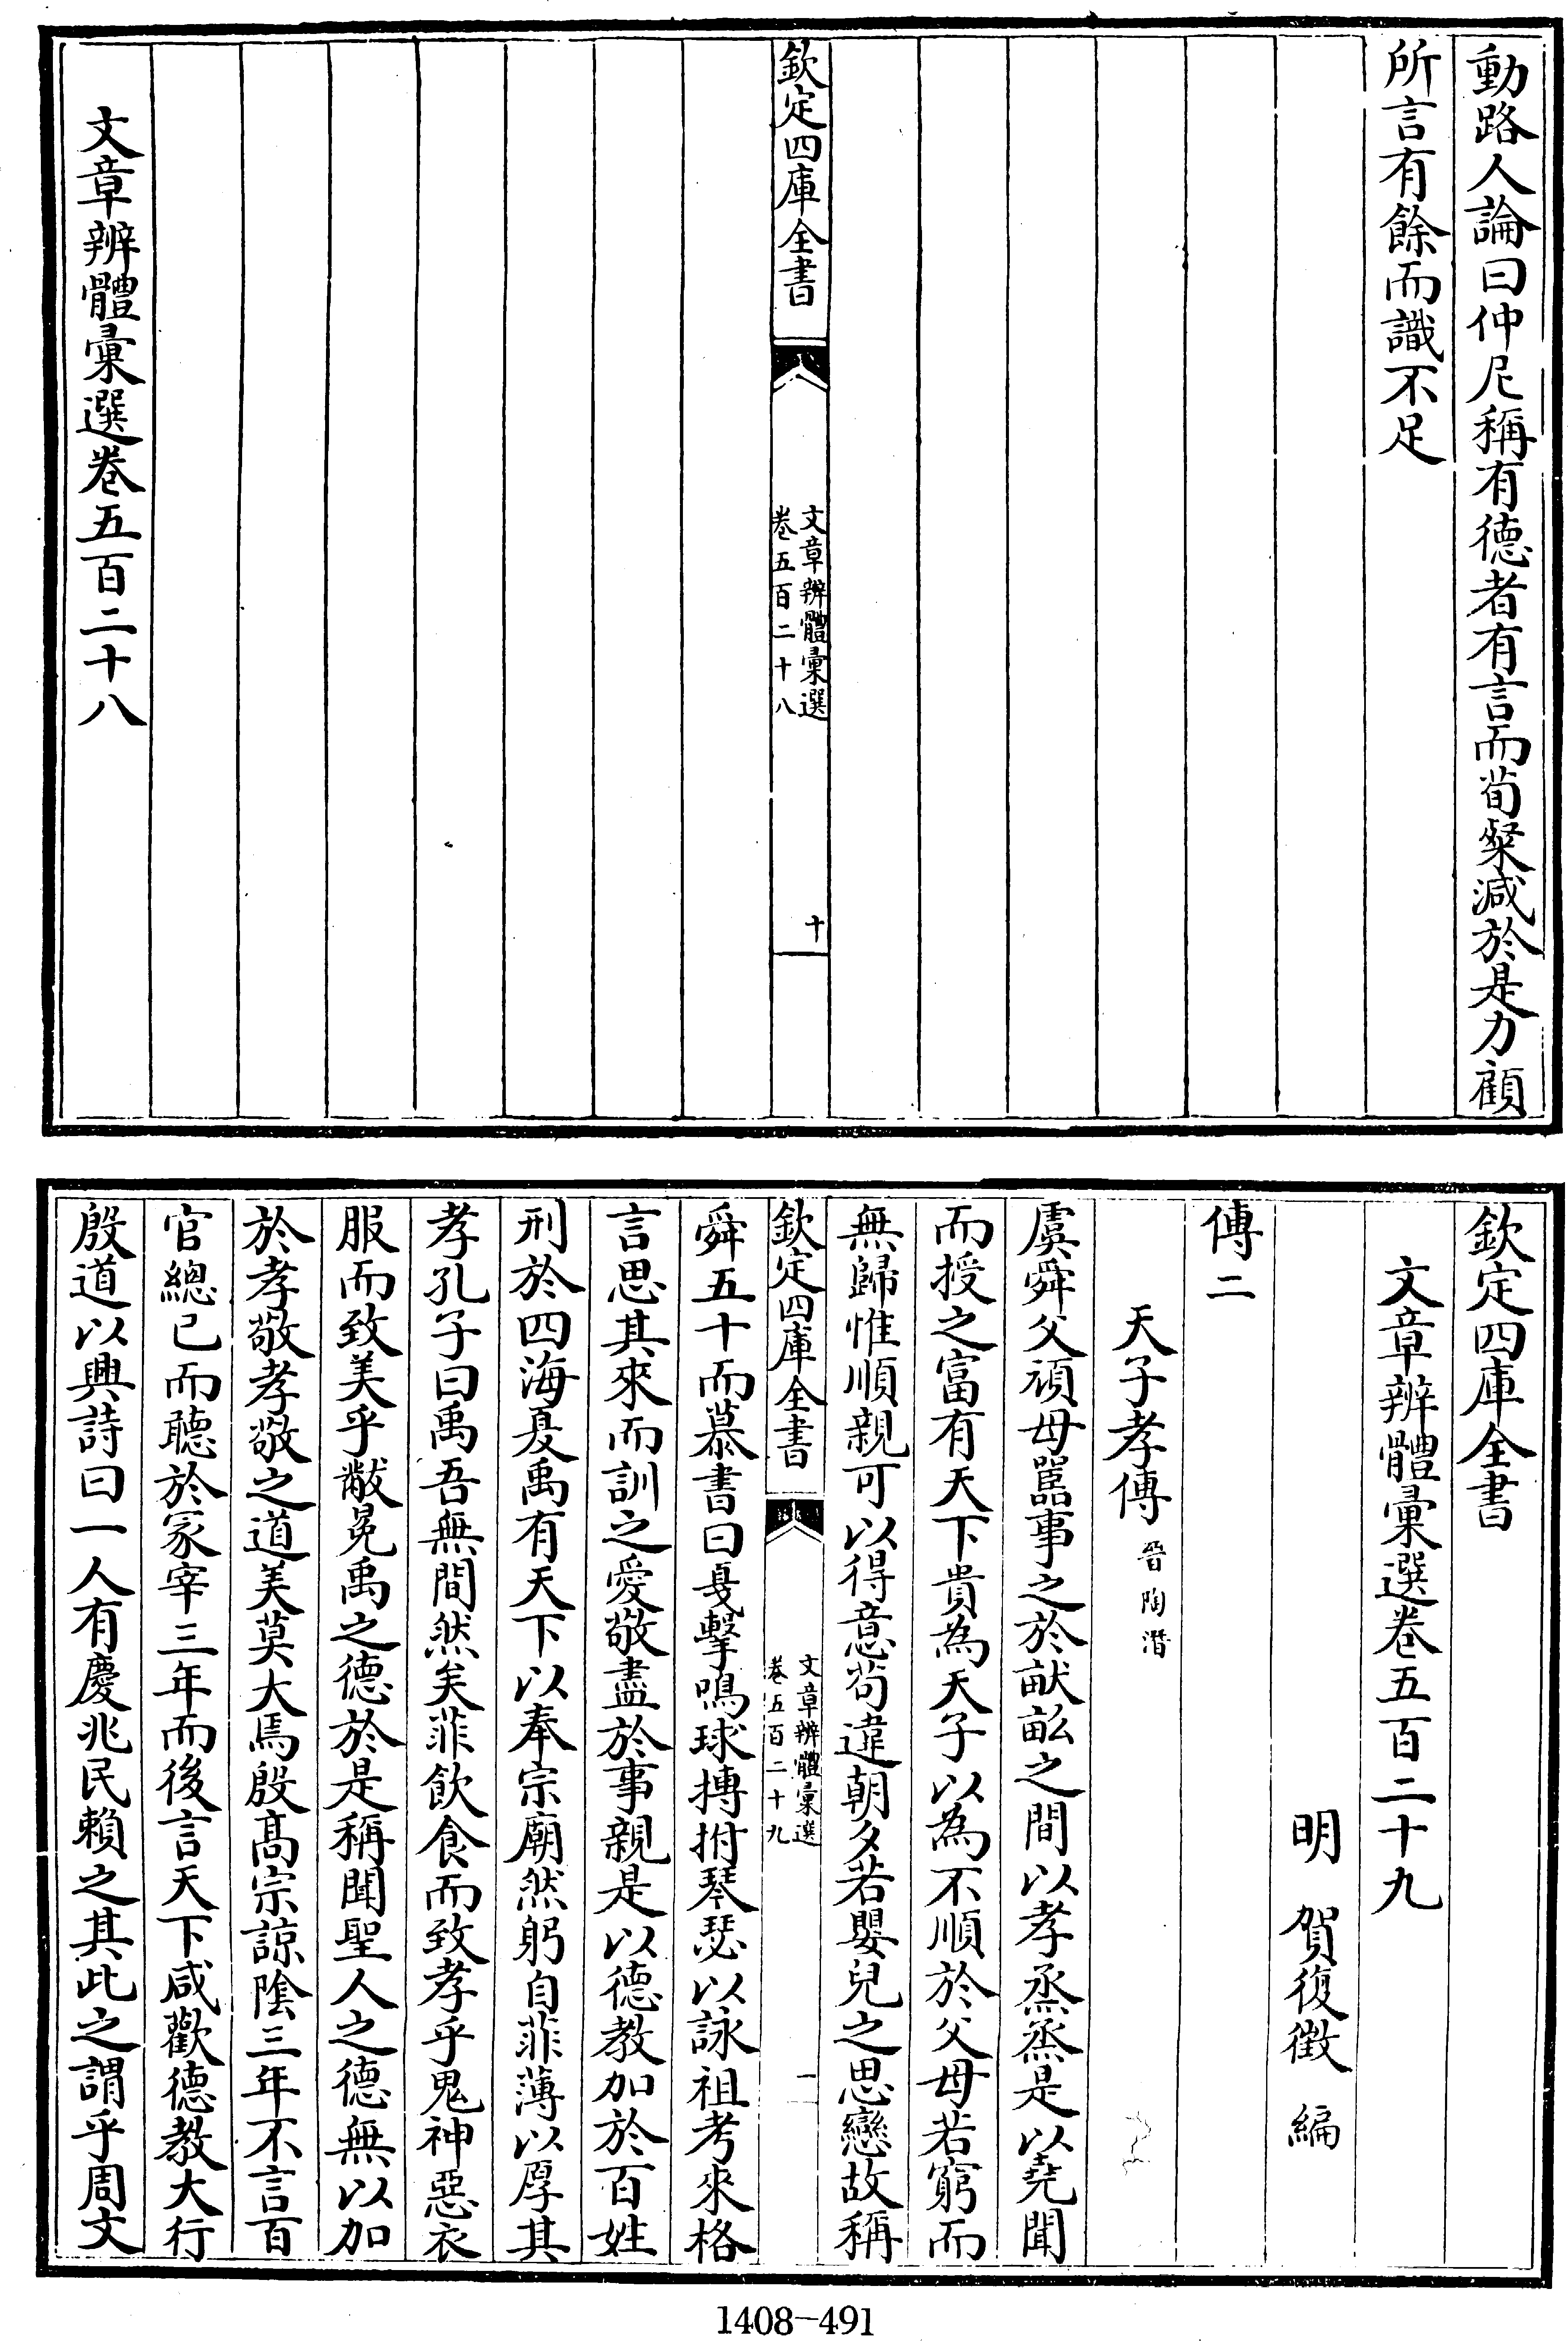 動路人論曰仲尼稱有德者有言而荀粲減於是力顧
所言有餘而識不足
欽定四庫全書
文章辨體彙選
卷五百二十八
十
文章辨體彙選卷五百二十八
欽定四庫全書
文章辨體彙選卷五百二十九
明 賀復徵 編
傳二
天子孝傳 晉陶潛
虞舜父頑母嚚事之於畎畝之間以孝烝烝是以堯聞
而授之富有天下貴為天子以為不順於父母若窮而
無歸惟順親可以得意苟違朝夕若嬰兒之思戀故稱
欽定四庫全書
文章辨體彙選
卷五百二十九
一
舜五十而慕書曰戛擊鳴球搏拊琴瑟以詠祖考來格
言思其來而訓之愛敬盡於事親是以德教加於百姓
刑於四海夏禹有天下以奉宗廟然躬自菲薄以厚其
孝孔子曰禹吾無間然矣菲飲食而致孝乎鬼神惡衣
服而致美乎黻冕禹之德於是稱聞聖人之德無以加
於孝敬孝敬之道美莫大焉殷髙宗諒陰三年不言百
官總已而聽於冢宰三年而後言天下咸歡德教大行
殷道以興詩曰一人有慶兆民賴之其此之謂乎周文
1408-491